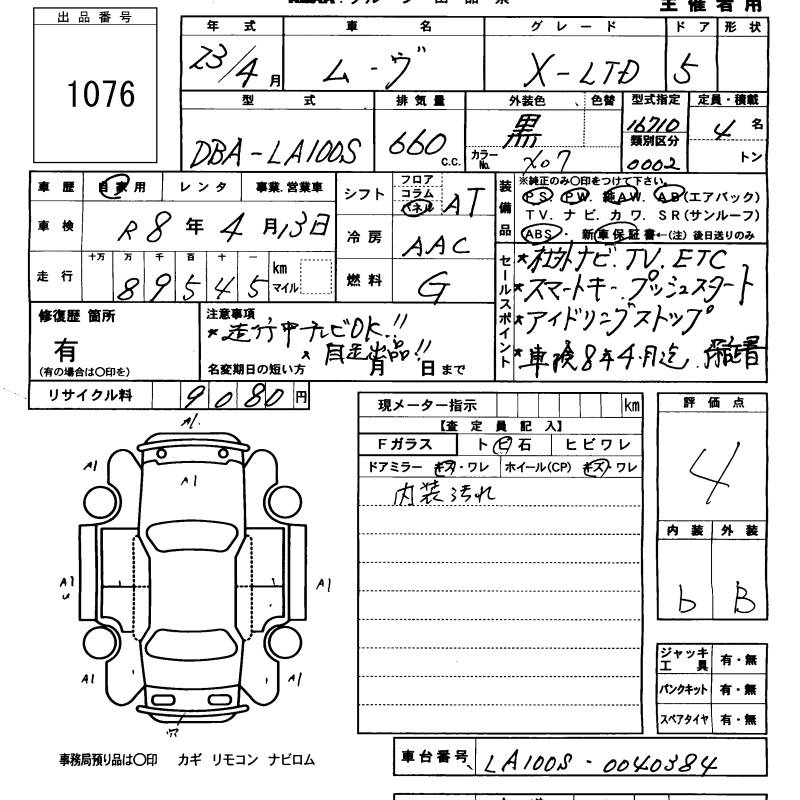 主催者用
出品番号
1076
年式 車名 グレード ドア 形状
23/4月 ムーヴ X-LTD 5
型式 排気量 外装色 色替 型式指定 定員・積載
DBA-LA100S 660 c.c. 黒 16710 4名
カラーNo. X07 類別区分 0002 トン
車歴 自家用 レンタ 事業.営業車
車検 R8年4月13日
走行 十万 万 千 百 十 一 km マイル
89545
シフト フロア コラム パネル AT
冷房 AAC
燃料 G
装備品 ※純正のみ〇印をつけて下さい。
PS. PW. 純AW. AB(エアバック)
TV. ナビ. カワ. SR(サンルーフ)
ABS ・ 新車保証書←(注)後日送りのみ
セールスポイント
★社外ナビ.TV.ETC
★スマートキー.プッシュスタート
★アイドリングストップ
★車検8年4月迄.保証書
修復歴 箇所
有
(有の場合は〇印を)
注意事項
★走行中テレビOK!!
★自走出品!!
名変期日の短い方 月 日まで
リサイクル料 9080円
現メーター指示 km
【査定員記入】
Fガラス ト ビ 石 ヒビワレ
ドアミラー キズ・ワレ ホイール(CP) キズ・ワレ
内装汚れ
評価点
4
内装 外装
b B
A1
A1 A1 A1
A1 A1
A1 A1
穴
ジャッキ工具 有・無
パンクキット 有・無
スペアタイヤ 有・無
事務局預り品は〇印 カギ リモコン ナビロム
車台番号 LA100S-0040384